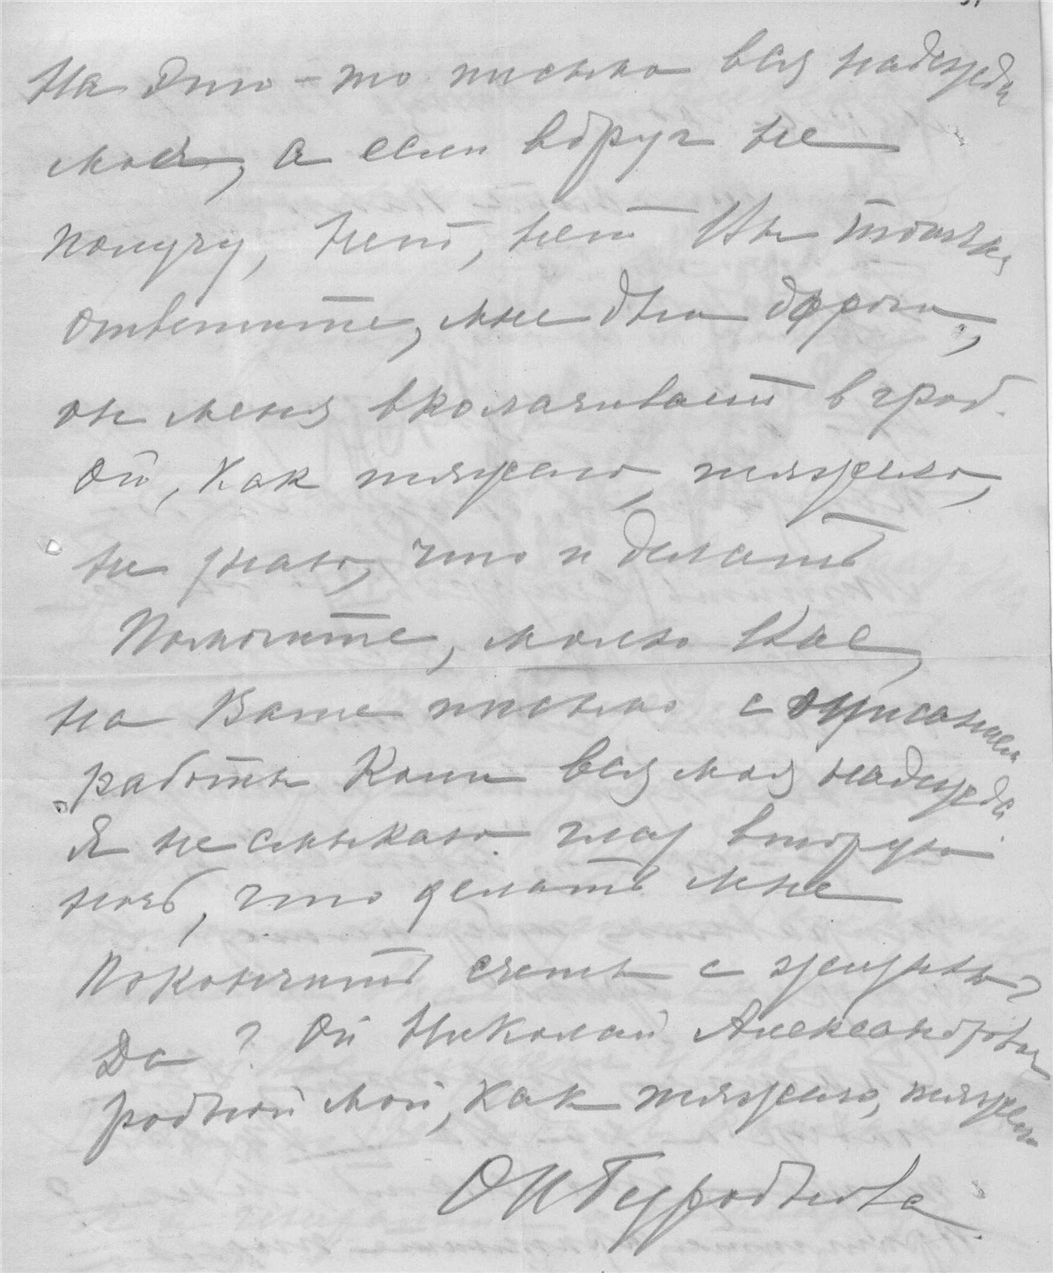 На это-то письмо вся надежда
моя, а если вдруг не
получу, нет, нет Вы только
ответите, мне два дорога,
он меня вколачивает в гроб.
Ой, как тяжело, тяжело,
не знаю, что и делать
Помогите, молю Вас,
на Ваше письмо с описанием
работы Коли вся моя надежда.
Я не смыкаю глаз вторую
ночь, что делать мне
Покончить счеты с жизнью?
Да? Ой Николай Александрович
родной мой, как тяжело, тяжело